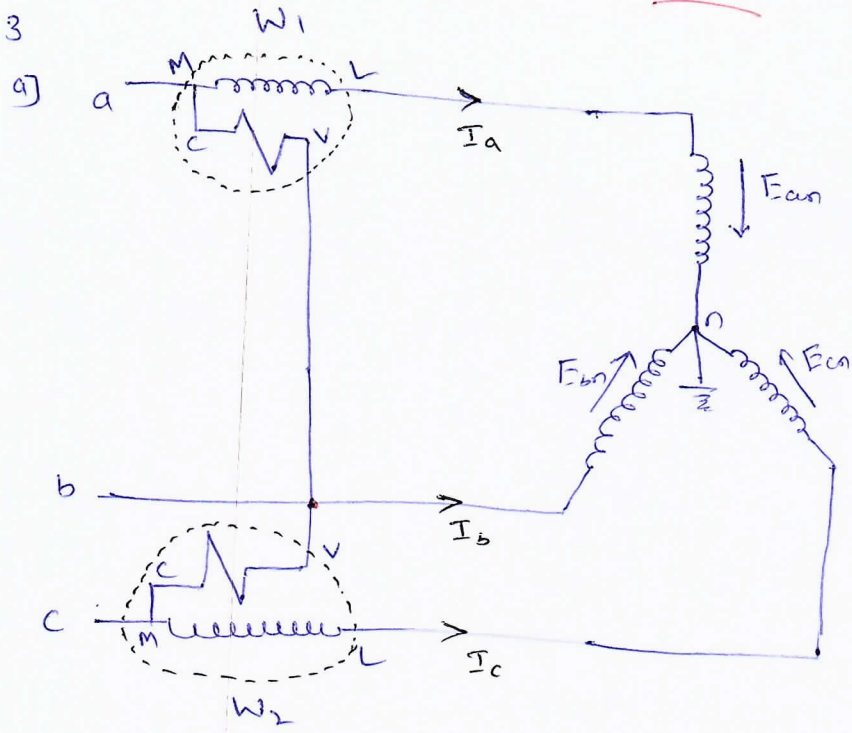 3
W1
a]
M
L
a
C
V
Ia
Ean
n
Ebn
Ecn
b
Ib
C
V
C
M
L
Ic
W2